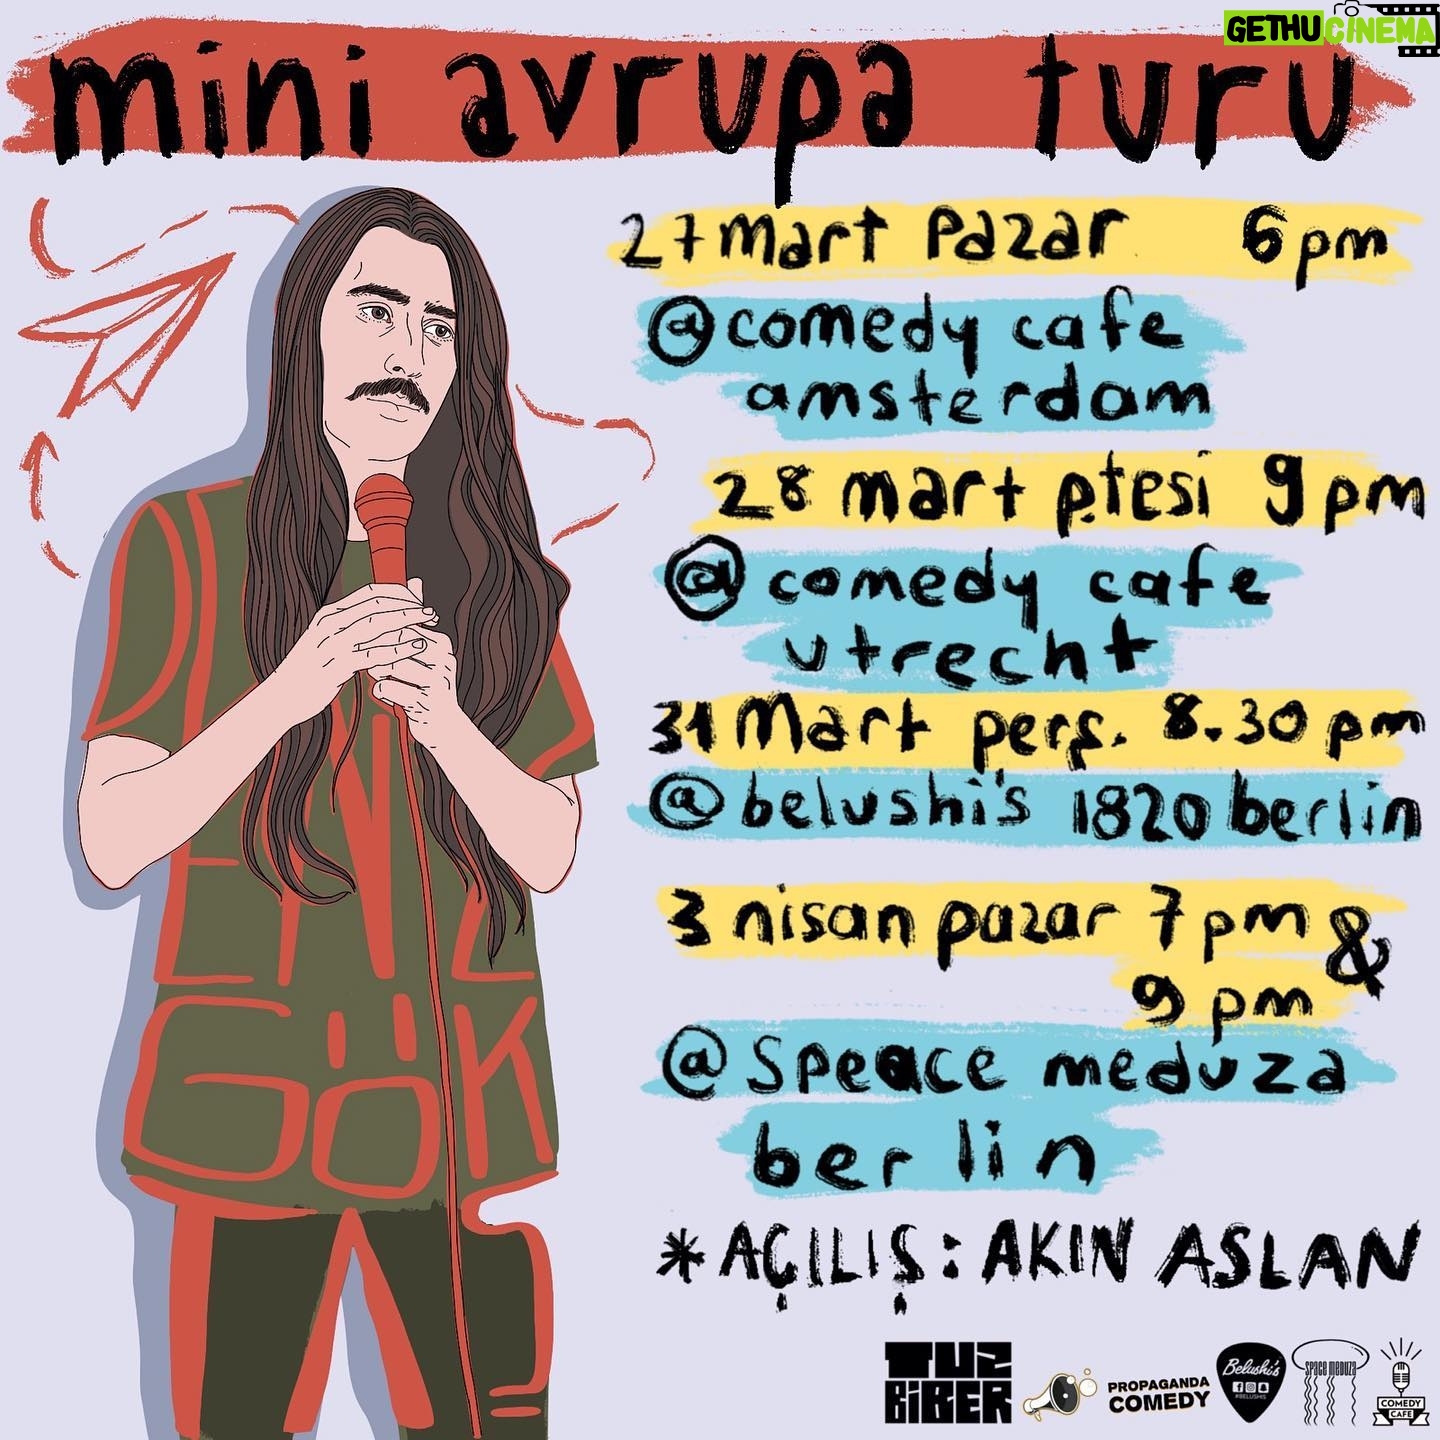 GETHU CINEMA
mini avrupa turu
27 mart pazar 6 pm
@comedy cafe
amsterdam
28 mart p.tesi 9 pm
@ comedy cafe
utrecht
31 mart perş. 8.30 pm
@belushi's 1820 berlin
3 nisan pazar 7 pm &
9 pm
@ speace meduza
berlin
* AÇILIŞ: AKIN ASLAN
DENİZ
GÖK
TAŞ
TUZ
BİBER
PROPAGANDA
COMEDY
Belushi's
#BELUSHIS
SPACE MEDUZA
COMEDY
CAFE